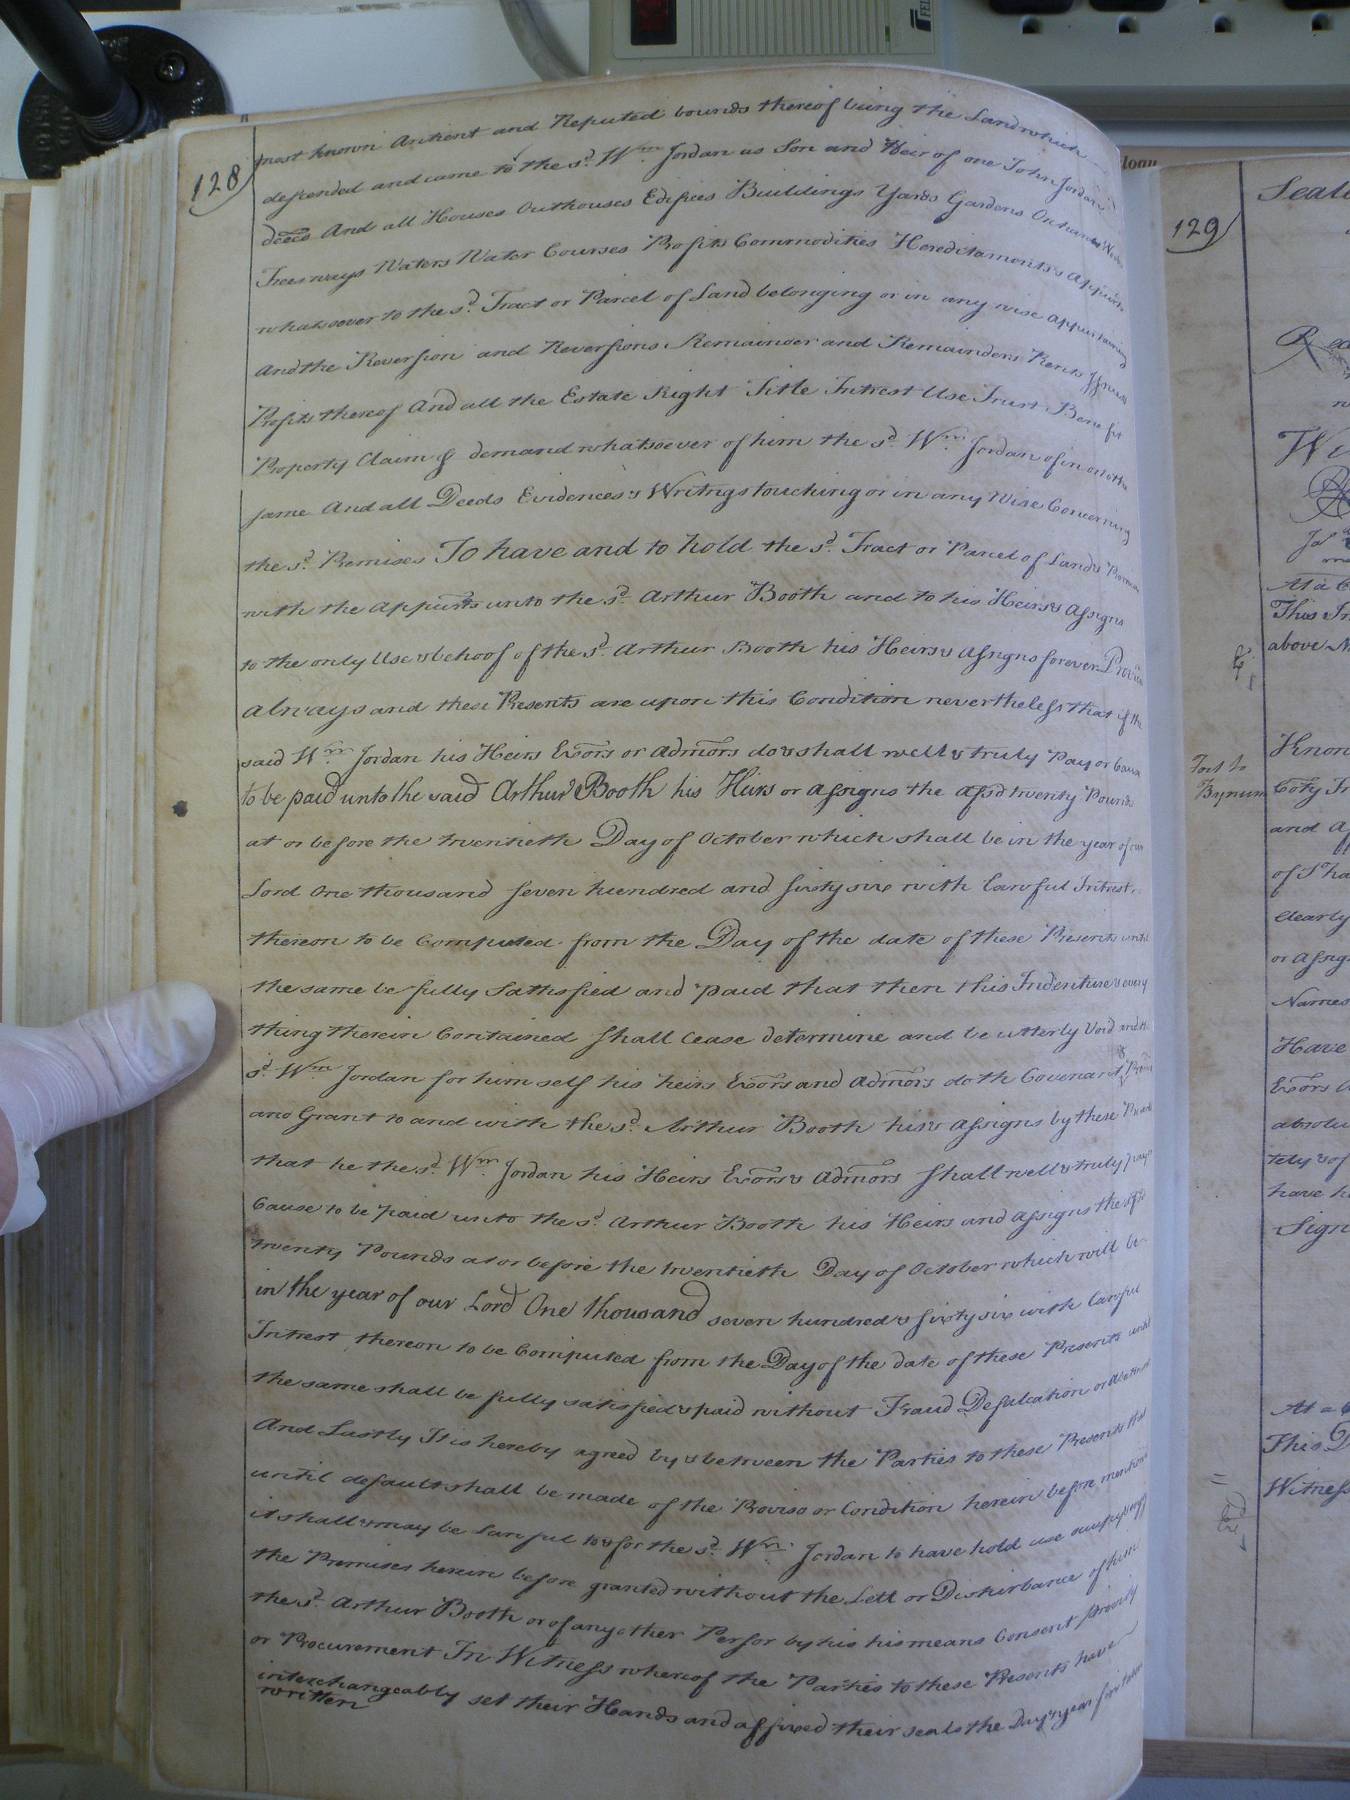 128
most known Antient and Reputed bounds thereof being the Land which
descended and came to the sd. Wm. Jordan as Son and Heir of one John Jordan
deced And all Houses Outhouses Edifices Buildings Yards Gardens Orchards
Trees ways Waters Water Courses Profits Commodities Hereditaments & Appurts
whatsoever to the sd. Tract or Parcel of Land belonging or in any wise appurtaining
And the Reversion and Reversions Remainder and Remainders Rents Issues
Profits thereof And all the Estate Right Title Intrest Use Trust Benefit
Property Claim & demand whatsoever of him the sd. Wm. Jordan of in or to the
same And all Deeds Evidences & Writings touching or in any Wise Concerning
the sd. Premises To have and to hold the sd. Tract or Parcel of Land &
with the Appurts unto the sd. Arthur Booth and to his Heirs & Assigns
to the only Use & behoof of the sd. Arthur Booth his Heirs & Assigns forever
always and these Presents are upon this Condition nevertheless that if the
said Wm Jordan his Heirs Exors or Admors do & shall well & truly Pay or Cause
to be paid unto the said Arthur Booth his Heirs or Assigns the afsd twenty Pounds
at or before the twentieth Day of October which shall be in the year of our
Lord One thousand seven hundred and sixty six with Lawful Intrest
thereon to be Computed from the Day of the date of these Presents until
the same be fully Sattisfied and paid that then this Indenture & every
thing therein Contained shall cease determine and be utterly Void and the
sd. Wm Jordan for himself his heirs Exors and Admors doth Covenant
and Grant to and with the sd. Arthur Booth his & Assigns by these
that he the sd. Wm. Jordan his Heirs Exors & Admors shall well & truly pay
Cause to be paid unto the sd. Arthur Booth his Heirs and Assigns the
twenty Pounds at or before the twentieth Day of October which will be
in the year of our Lord One thousand seven hundred & sixty six with Lawful
Intrest thereon to be Computed from the Day of the date of these Presents until
the same shall be fully satisfied & paid without Fraud Defalcation or
And Lastly It is hereby agreed by & between the Parties to these Presents that
until default shall be made of the Proviso or Condition herein before mentiond
it shall & may be Lawful to & for the sd. Wm. Jordan to have hold use
the Premises herein before granted without the Lett or Disturbance of him
the sd. Arthur Booth or of any other Person by his his means Consent Privity
or Procurement In Witness whereof the Parties to these Presents have
interchangeably set their Hands and affixed their seals the Day & year first above
written
129
Seale
Know
Fort to
Bynum
Coty
and
of Tha
Clearly
or Assig
Names
Have
Exors
absolu
tely & of
have h
Sign
At a C
This In
above
At a
This D
Witness